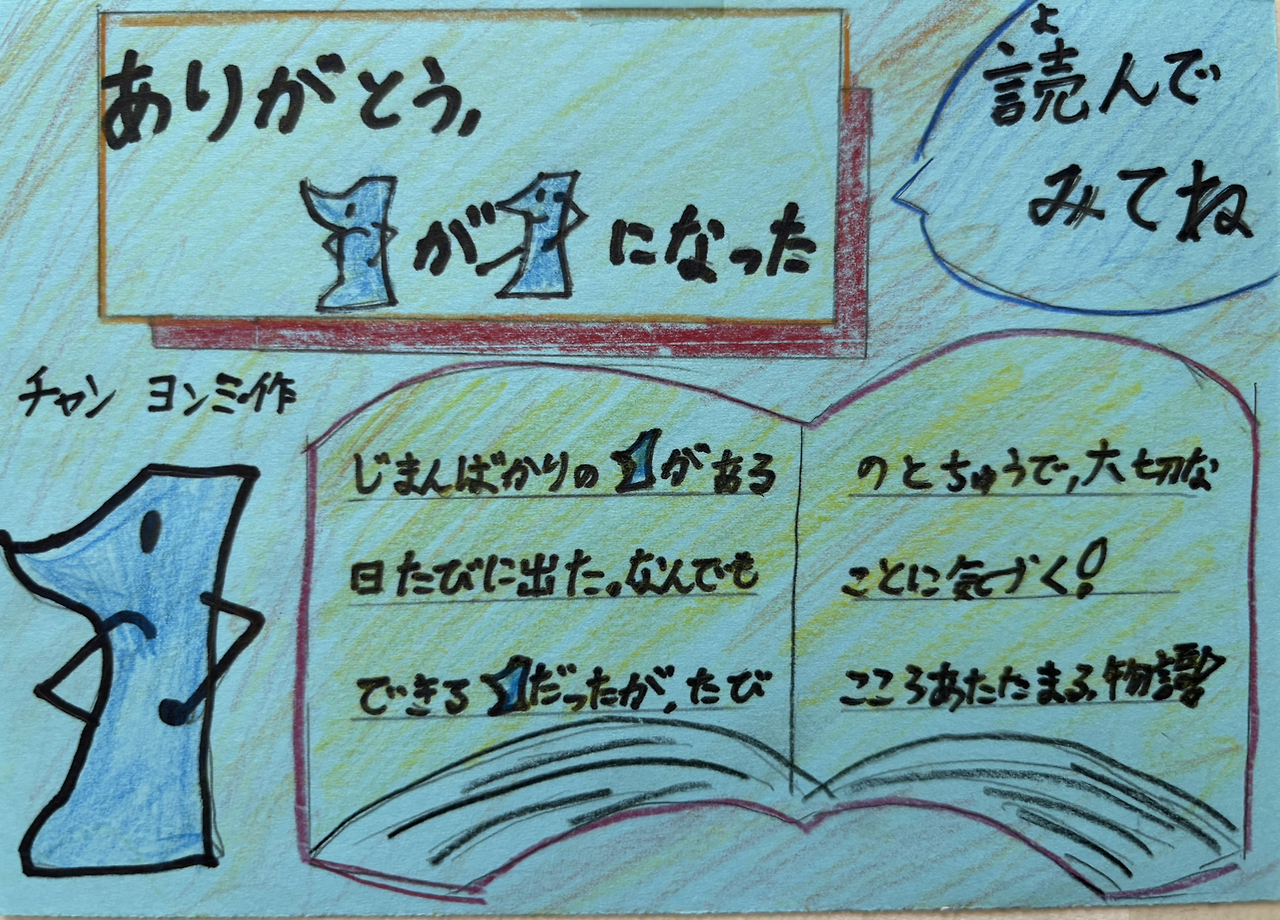 ありがとう,
1が1になった
よ
読んで
みてね
チャン ヨンミ作
じまんばかりの1がある
日たびに出た。なんでも
できる1だったが,たび
のとちゅうで,大切な
ことに気づく!
こころあたたまる物語